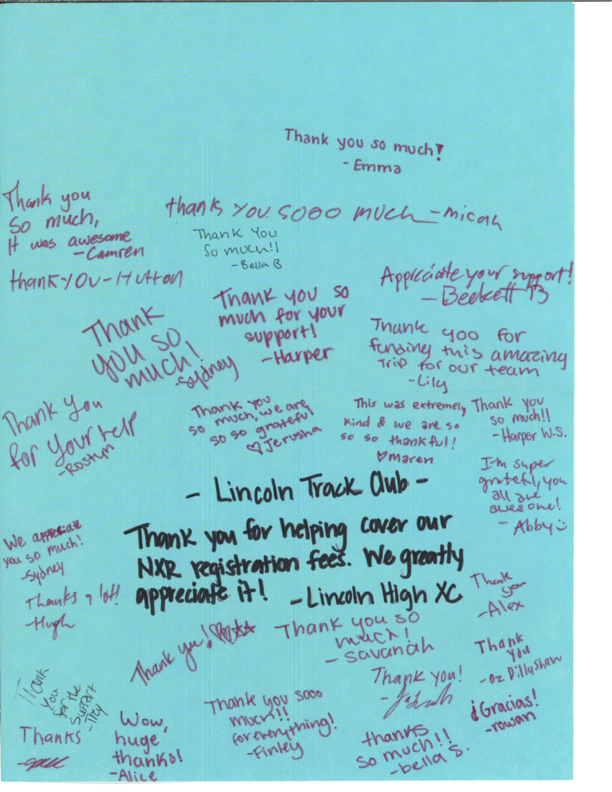 Thank you so much!
- Emma
Thank you
So much,
It was awesome
- Camren
thank you sooo much - micah
Thank You
So much!!
- Bella B
thank you - Hutton
Appriciate your support!
- Beckett B
Thank you so
much for your
support!
- Harper
THANK
you so
much!
- Sydney
Thank you for
funding this amazing
Trip for our team
- Lily
Thank you
for your help
- Rostyn
Thank you
so much, we are
so so grateful
♡ Jerusha
This was extremely
kind & we are so
so so thankful!
♡ maren
Thank you
so much!!
- Harper W.S.
I'm super
grateful, you
all are
awesome!
- Abby ☺
- Lincoln Track Club -
Thank you for helping cover our
NXR registration fees. We greatly
appreciate it!
- Lincoln High XC
We appreciate
you so much!
- Sydney
Thanks a lot!
- Hugh
Thank
you
- Alex
Thank you so
much!
- Savanah
Thank you! ♡♡☆☆
Thank
you
- Oz Dillyshaw
Thank you!
Thank
you
for the
- Trey
Thank you sooo
much!!
for everything!
- Finley
¡Gracias!
- rowan
Thanks
Wow,
huge
thanks!
- Alice
thanks
so much!!
- bella S.